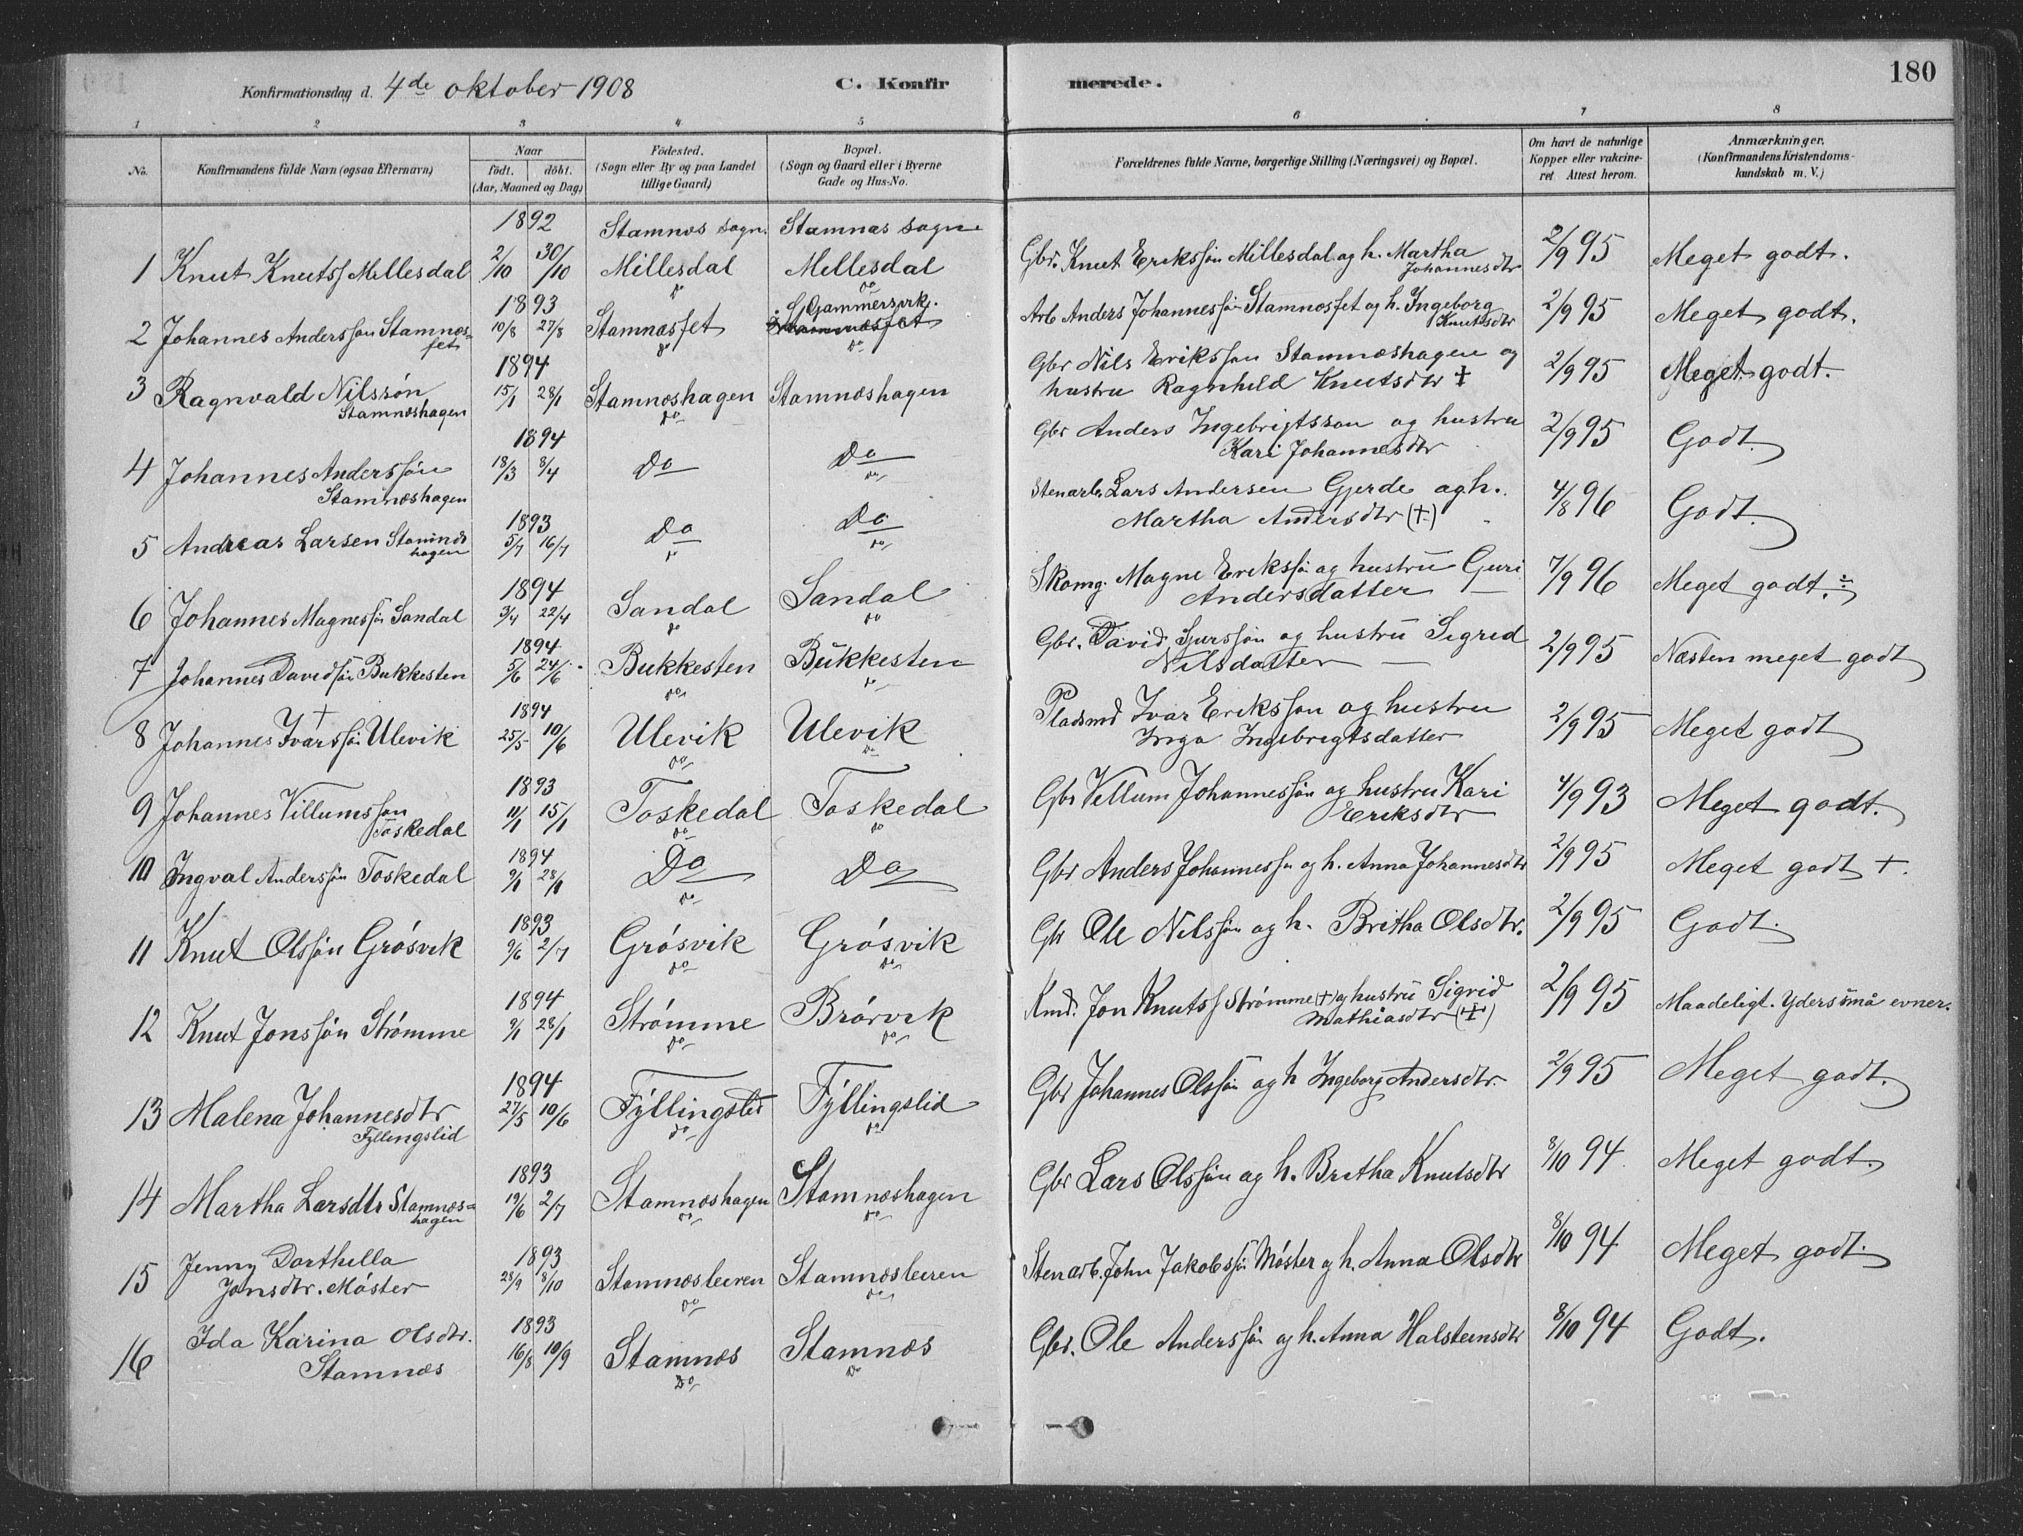 Konfirmationsdag d. 4de oktober 1908 C. Konfir merede. 180
1 2 3 4 5 6 7 8
No. Konfirmandens fulde Navn (ogsaa Efternavn) Naar födt. döbt. (Aar, Maaned og Dag) Födested. (Sogn eller By og paa Landet tillige Gaard) Bopæl. (Sogn og Gaard eller i Byerne Gade og Hus-No. Forældrenes fulde Navne, borgerlige Stilling (Næringsvei) og Bopæl. Om havt de naturlige Kopper eller vakcineret. Attest herom. Anmærkninger. (Konfirmandens Kristendomskundskab m. V.)
1892 Stamnes sogn. Stamnæs sogn
1 Knut Knutss Millesdal 2/10 30/10 Millesdal do Millesdal do Gbr. Knut Erikssøn Millesdal og h. Martha Johannesdtr 2/9 95 Meget godt.
1893
2 Johannes Anderssøn Stamnæsfet 10/8 27/8 Stamnæsfet do Gammersvik. Stamnæsfet do Arb Anders Johannessøn Stamnæsfet og h. Ingeborg Knutsdtr 2/9 95 Meget godt.
1894
3 Ragnvald Nilssön Stamnæshagen 15/1 28/1 Stamnæshagen do Stamnæshagen Gbr Nils Erikssøn Stamnæshagen og hustru Ragnhild Knutsdtr + 2/9 95 Meget godt.
1894
4 Johannes Anderssön Stamnæshagen 18/3 8/4 Do Do do Gbr Anders Ingebrigtsson og hustru Kari Johannesdtr 2/9 95 Godt.
1893
5 Andreas Larsen Stamnæshagen 5/7 16/7 Do do Do do Stenarb. Lars Andersen Gjerde og h. Martha Andersdtr (+) 4/8 96 Godt.
1894
6 Johannes Magnessøn Sandal 3/4 22/4 Sandal do Sandal do Skomg. Magne Erikssøn og hustru Guri Andersdatter 7/9 96 Meget godt. ÷
1894
7 Johannes Davidsøn Bukkesten 5/6 24/6 Bukkesten do Bukkesten do Gbr. David Sjurssøn og hustru Sigrid Nilsdatter 2/9 95 Næsten meget godt
1894
8 Johannes Ivarssøn Ulevik + 25/5 10/6 Ulevik do Ulevik do Pladsmd Ivar Erikssøn og hustru Inga Ingebrigtsdatter 2/9 95 Meget godt
1893
9 Johannes Villumssøn Toskedal 11/1 15/1 Toskedal do Toskedal do Gbr Vellum Johannessøn og hustru Kari Eriksdtr 4/9 93 Meget godt.
1894
10 Ingval Anderssøn Toskedal 9/1 28/1 Do do Do Gbr Anders Johannessøn og h. Anna Johannesdtr 2/9 95 Meget godt +.
1893
11 Knut Olssøn Grøsvik 9/6 2/7 Grøsvik do Grøsvik do Gbr Ole Nilssøn og h. Britha Olsdtr. 2/9 95 Godt.
1894
12 Knut Jonssøn Strömme 9/1 28/1 Strømme do Brørvik do Kmd. Jon Knutss Strømme (+) og hustru Sigrid Mathiasdtr (+) 2/9 95 Maadeligt. Yders små evner.
1894
13 Malena Johannesdtr Fyllingslid 27/5 10/6 Fyllingslid do Fyllingslid do Gbr Johannes Olssøn og h Ingeborg Andersdtr. 2/9 95 Meget godt.
1893
14 Martha Larsdtr Stamnæshagen 19/6 2/7 Stamnæshagen do Stamnæshagen do Gbr Lars Olssøn og h. Britha Knutsdtr 8/10 94. Meget godt.
1893
15 Jenny Dorthella Jonsdtr. Møster 28/9 8/10 Stamnæsleeren do Stamnæsleeren do Stenarb. John Jakobssøn Møster og h. Anna Olsdtr 8/10 94 Meget godt.
1893
16 Ida Karina Olsdtr. Stamnæs 16/8 10/9 Stamnæs Do Stamnæs Do Gbr. Ole Anderssøn og h. Anna Halsteinsdtr 8/10 94 Godt.